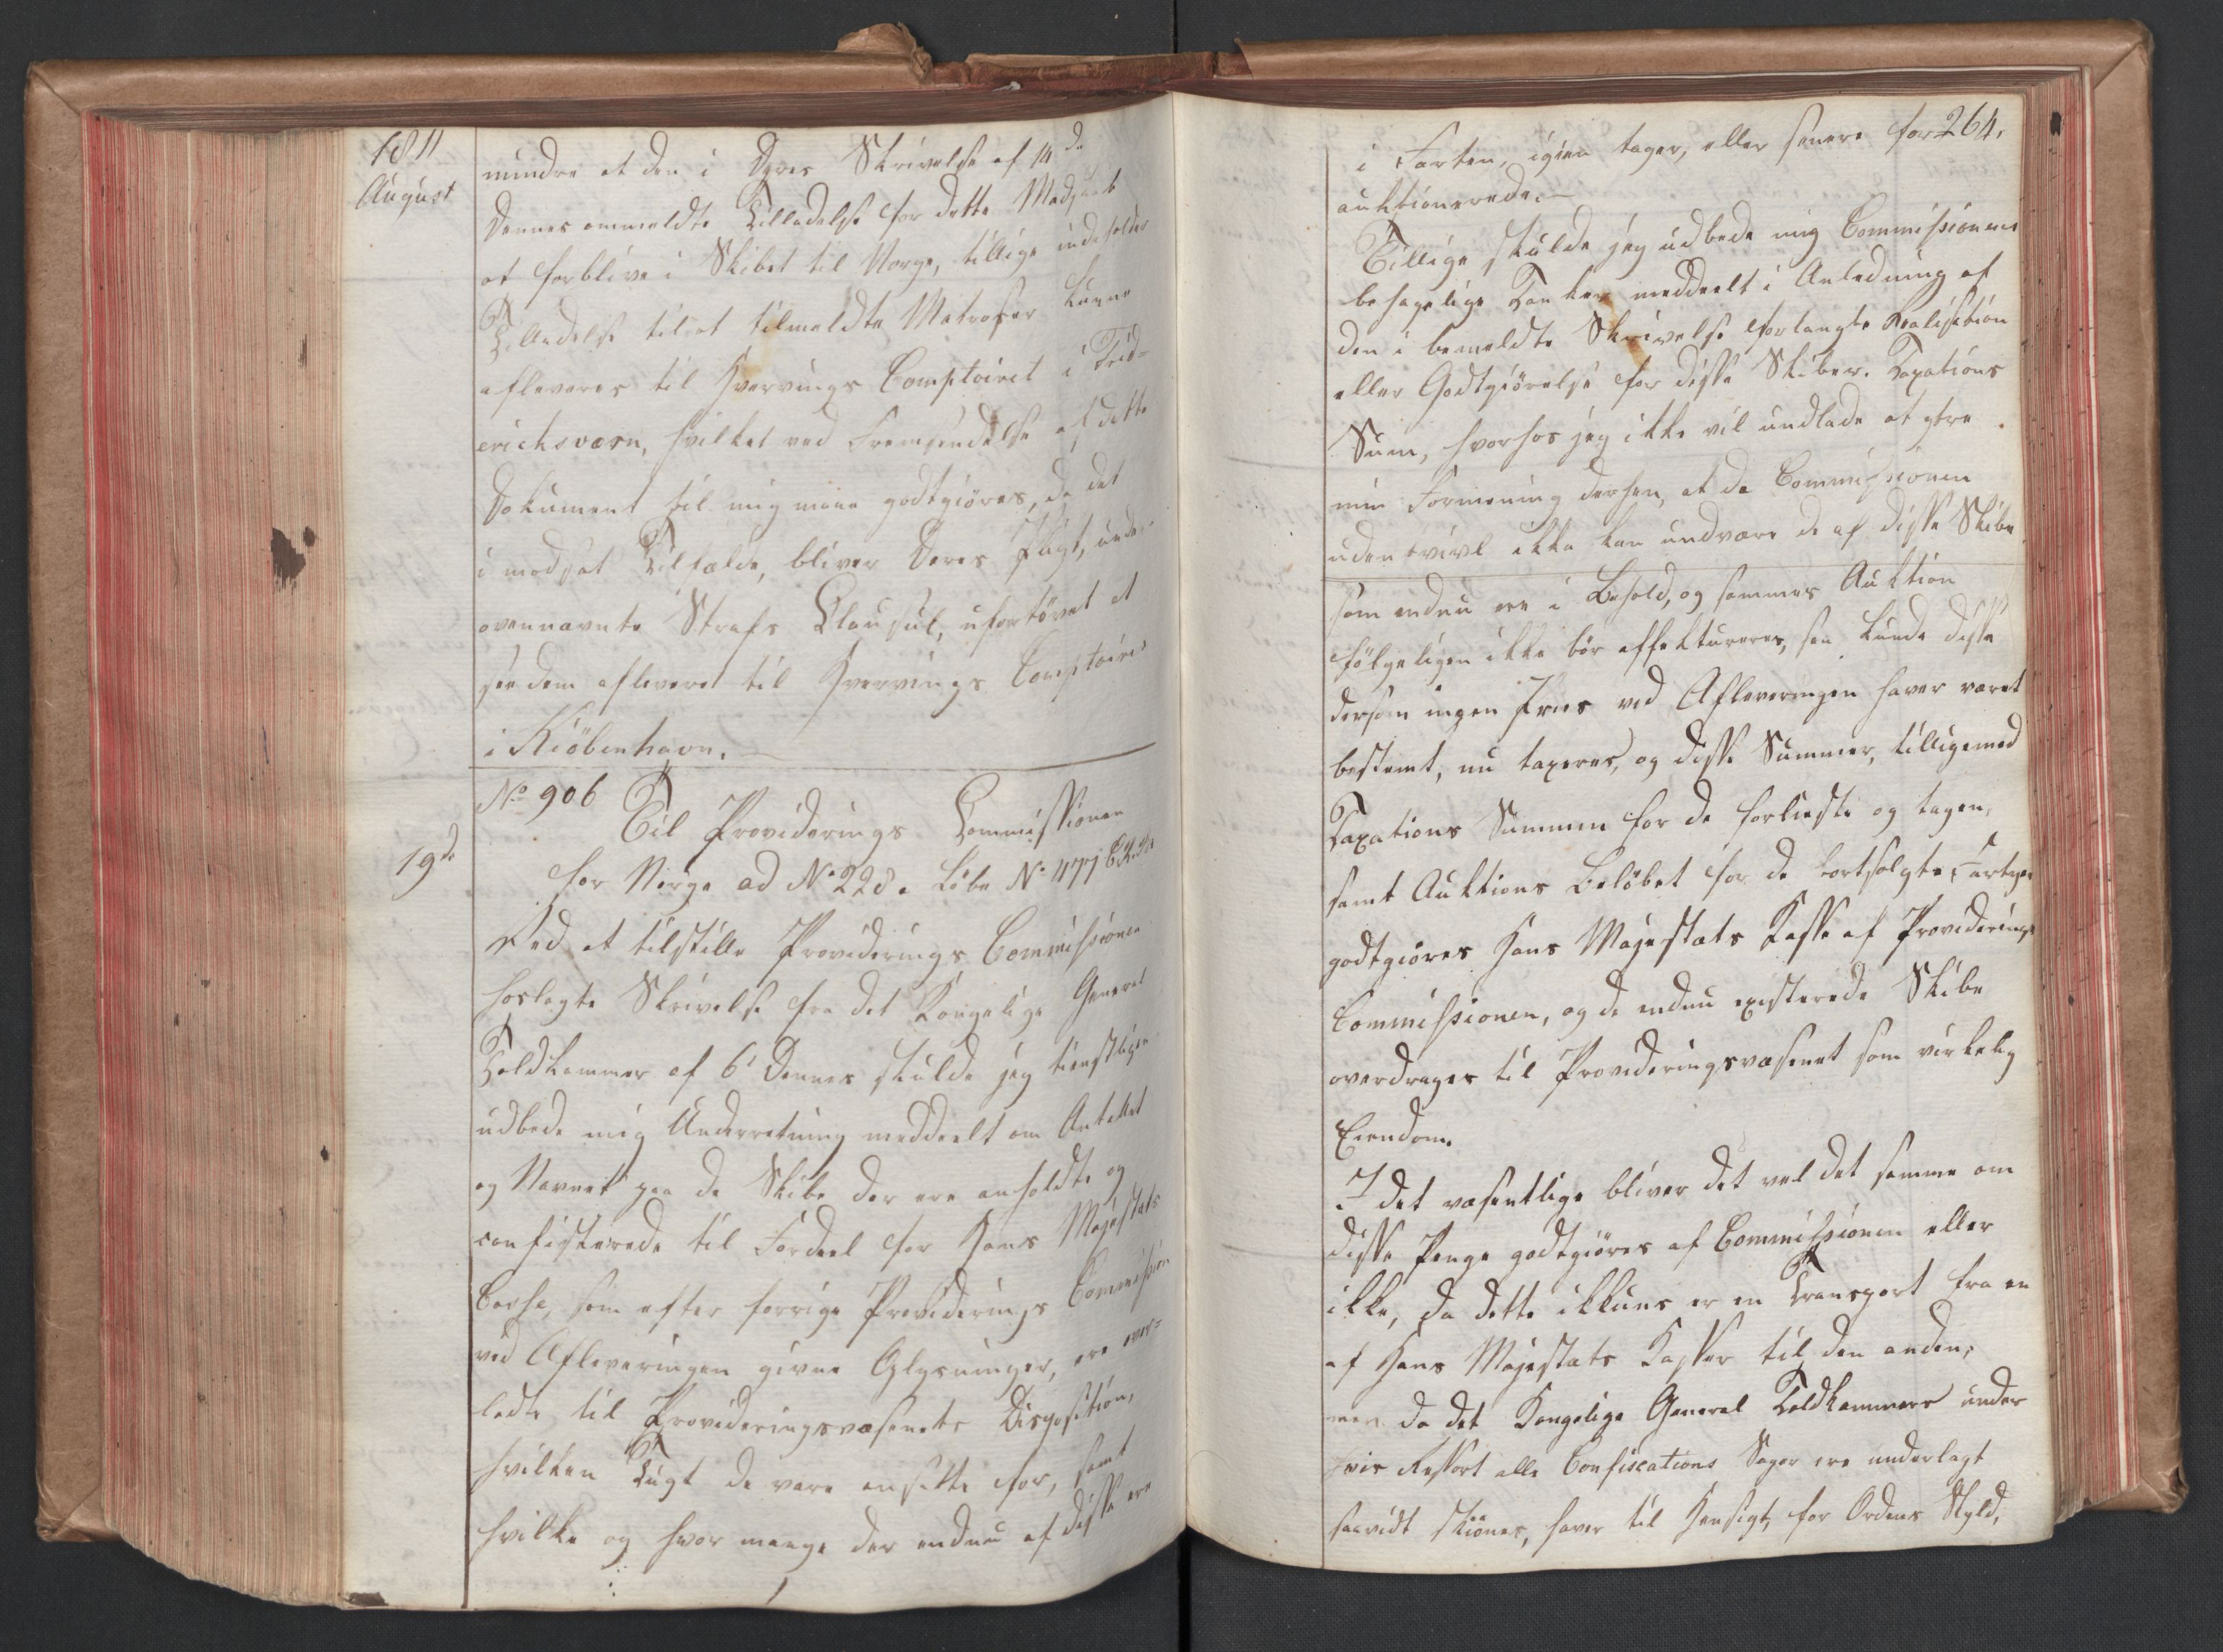 1811
August
mindre at den i Deres Skrivelse af 14de
Dennes ommeldte Tilladelse for dette Madskab
at forblive i Skibet til Norge, tillige indeholder
Tilladelse til at tilmeldte Matroser kunne
afleveres til Hvervings Comptoiret i Frid-
erichsværn, hvilket ved Fremsendelse af dette
Dokument til mig maae godtgiöres, da det
i modsat Tilfælde, bliver Deres Pligt, under
ovennævnte Strafs Clausul, ufortövet at
see dem afleveret til Hvervings Comptoiret
i Kiöbenhavn.
No 906
Til Providerings Commissionen
19de
for Norge ad No 228. Löbe No 477
Ved at tilstille Providerings Commissionen
hoslagte Skrivelse fra det Kongelige General
Toldkammer af 6 Dennes skulde jeg tienstligen
udbede mig Underretning meddeelt om Antallet
og Navnet paa de Skibe der ere anholdte og
confiskerede til Fordeel for Hans Majestæts
Casse, som efter forrige Providerings Commission
ved Afleveringen givne Oplysninger, ere over-
ladte til Provideringsvæsenets Disposition,
hvilken Tugt de vare ansatte for, samt
hvilke og hvor mange der endnu af disse ere
264.
i Farten, igien tagne, eller senere for
auktionerede.
Tillige skulde jeg udbede mig Commissionens
behagelige Tanker meddeelt i Anledning af
den i bemeldte Skrivelse forlangte Realisation
eller Godtgiörelse for disse Skibes Taxations
Sum, hvorhos jeg ikke vil undlade at yttre
min Formening derhen, at da Commissionen
uden tvivl ikke kan undvære de af disse Skibe
som endnu ere i Behold, og sammes Auktion
fölgeligen ikke bör effektueres, saa kunde disse
dersom ingen Priis ved Afleveringen haver været
bestemt, nu taxeres, og disse Summer, tilligemed
Taxations Summen for de forliiste og tagne,
samt Auktions Belöbet for de bortsolgte Fartöyer
godtgiöres Hans Majestæts Kasse af Providerings
Commissionen, og de endnu existerede Skibe
overdrages til Provideringsvæsenet som virkelig
Eiendom.
I det væsentlige bliver det vel det samme om
disse Penge godtgiöres af Commissionen eller
ikke, da dette ikkuns er en Transport fra en
af Hans Majestæts Kasser til den anden,
men da det Kongelige General Toldkammer under
hvis Ressort alle Confiscations Sager ere underlagt
saavidt skiönes, haver til Hensigt, for Ordens Skyld,